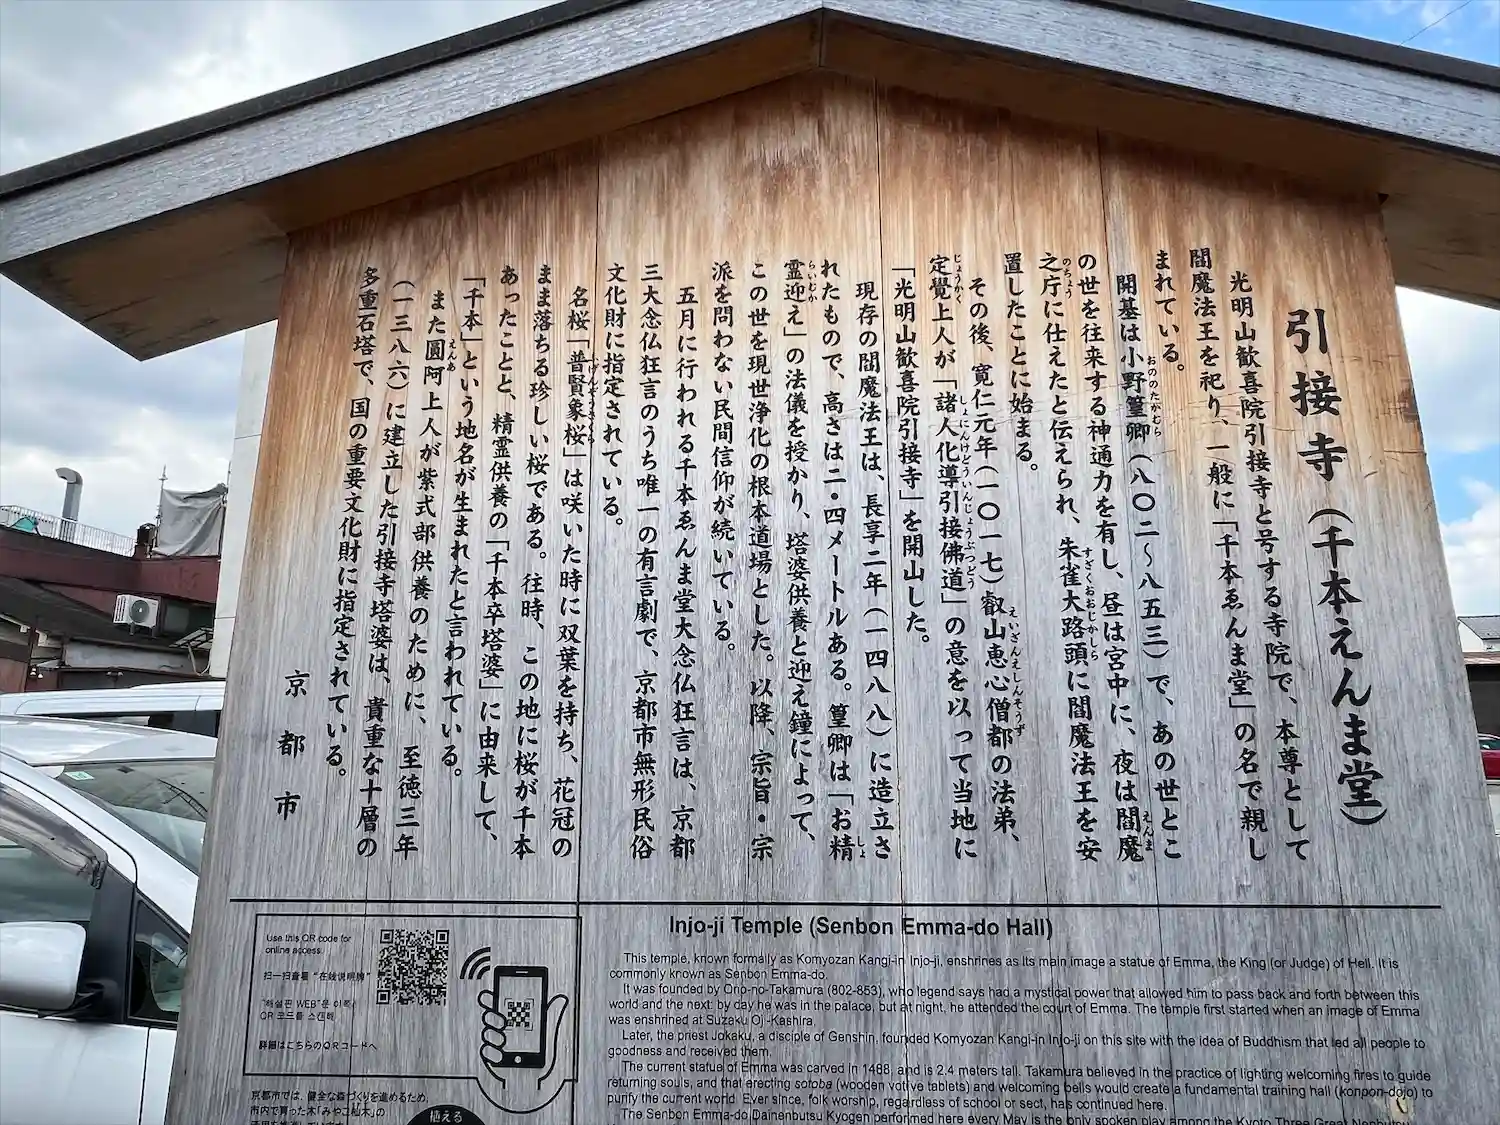 引接寺（千本えんま堂）
光明山歓喜院引接寺と号する寺院で、本尊として
閻魔法王を祀り、一般に「千本ゑんま堂」の名で親し
まれている。
開基は小野篁卿（八〇二〜八五三）で、あの世とこ
の世を往来する神通力を有し、昼は宮中に、夜は閻魔
之庁に仕えたと伝えられ、朱雀大路頭に閻魔法王を安
置したことに始まる。
その後、寛仁元年（一〇一七）叡山恵心僧都の法弟、
定覺上人が「諸人化導引接佛道」の意を以って当地に
「光明山歓喜院引接寺」を開山した。
現存の閻魔法王は、長享二年（一四八八）に造立さ
れたもので、高さは二・四メートルある。篁卿は「お精
霊迎え」の法儀を授かり、塔婆供養と迎え鐘によって、
この世を現世浄化の根本道場とした。以降、宗旨・宗
派を問わない民間信仰が続いている。
五月に行われる千本ゑんま堂大念仏狂言は、京都
三大念仏狂言のうち唯一の有言劇で、京都市無形民俗
文化財に指定されている。
名桜「普賢象桜」は咲いた時に双葉を持ち、花冠の
まま落ちる珍しい桜である。往時、この地に桜が千本
あったことと、精霊供養の「千本卒塔婆」に由来して、
「千本」という地名が生まれたと言われている。
また圓阿上人が紫式部供養のために、至徳三年
（一三八六）に建立した引接寺塔婆は、貴重な十層の
多重石塔で、国の重要文化財に指定されている。
京都市
Injo-ji Temple (Senbon Emma-do Hall)
This temple, known formally as Komyozan Kangi-in Injo-ji, enshrines as its main image a statue of Emma, the King (or Judge) of Hell. It is
commonly known as Senbon Emma-do.
It was founded by Ono-no-Takamura (802-853), who legend says had a mystical power that allowed him to pass back and forth between this
world and the next: by day he was in the palace, but at night, he attended the court of Emma. The temple first started when an image of Emma
was enshrined at Suzaku Oji-Kashira.
Later, the priest Jokaku, a disciple of Genshin, founded Komyozan Kangi-in Injo-ji on this site with the idea of Buddhism that led all people to
goodness and received them.
The current statue of Emma was carved in 1488, and is 2.4 meters tall. Takamura believed in the practice of lighting welcoming fires to guide
returning souls, and that erecting sotoba (wooden votive tablets) and welcoming bells would create a fundamental training hall (konpon-dojo) to
purify the current world. Ever since, folk worship, regardless of school or sect, has continued here.
The Senbon Emma-do Dainenbutsu Kyogen performed here every May is the only spoken play among the Kyoto Three Great Nenbutsu
Use this QR code for
online access.
扫一扫查看“在线说明牌”
QR 코드를 스캔해
詳細はこちらのQRコードへ
京都市では、健全な森づくりを進めるため、
市内で育った木「みやこ杣木」の
植える